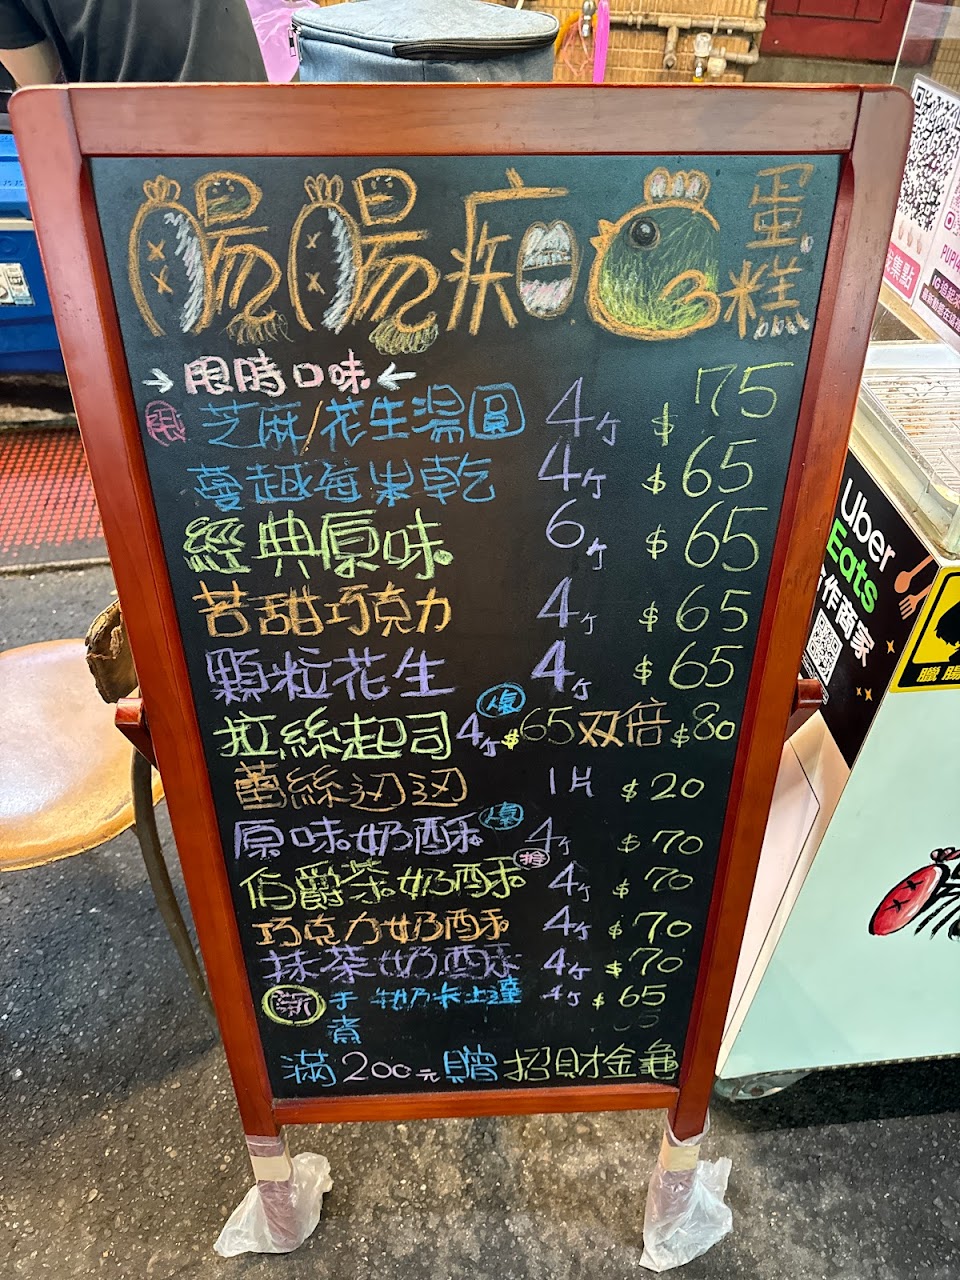 腸腸痴日ろ蛋糕
限時口味
芝麻/花生湯圓 4个 $75
蔓越莓果乾 4个 $65
經典原味 6个 $65
苦甜巧克力 4个 $65
顆粒花生 4个 $65
人氣
拉絲起司 4个 $65 双倍 $80
蕾絲边边 1片 $20
人氣
原味奶酥 4个 $70
推
伯爵茶奶酥 4个 $70
巧克力奶酥 4个 $70
抹茶奶酥 4个 $70
新 手煮 牛奶卡士達 4个 $65
滿200元贈招財金龜
Uber
Eats
合作商家
集點
IG追起來
臘腸